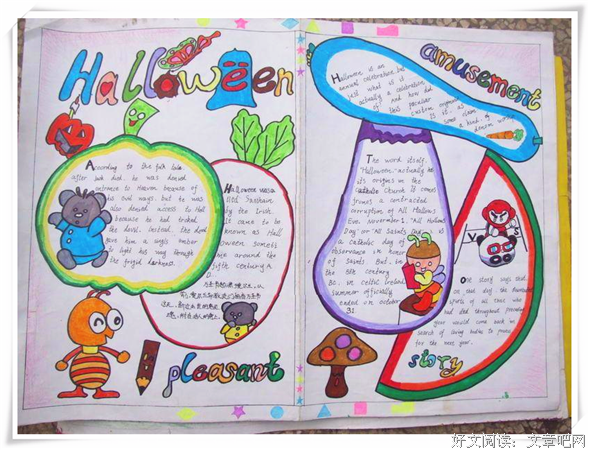 Halloween
According to the folk tale,
after Jack died, he was denied
entrance to Heaven because of
his evil ways, but he was
also denied access to Hell
because he had tricked
the devil. Instead, the devil
gave him a single ember
to light his way through
the frigid darkness.
Halloween was
Samhain
by the Irish.
It came to be
known as Hall
oween someti
me around the
fifth century A
D.
pleasant
amusement
Halloween is an
annual celebration, but
just what is it
actually a celebration
of? and how did
this peculiar
custom originate
Is it, as
some claim
a kind of
demon wor
The word itself,
"Halloween" actually has
its origins in the
Catholic Church. It comes
from a contracted
corruption of All Hallows
Eve. November 1, "All Hollows
Day" or "All Saints Day", is
a catholic day of
observance in honor
of Saints. But, in
the 5th century
BC, in celtic Ireland
summer officially
ended on october
31.
One story says that
on that day, the disembodied
spirits of all those who
had died throughout preceding
year would come back in
search of living bodies to possess
for the next year.
story
好文阅读：文章吧网